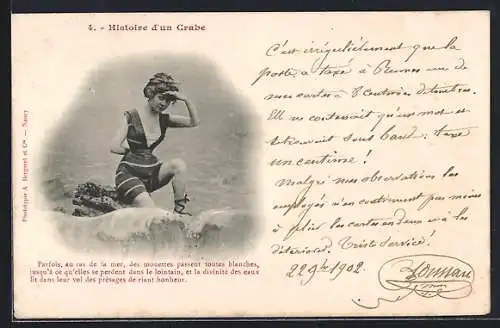 4. - Histoire d'un Crabe
Phototypie A. Bergeret et Cie — Nancy
Parfois, au ras de la mer, des mouettes passent toutes blanches,
jusqu'à ce qu'elles se perdent dans le lointain, et la divinité des eaux
lit dans leur vol des présages de riant bonheur.
C'est irrégulièrement que la
poste a taxé à Rennes une de
mes cartes à 5 centimes
Elle ne contenait qu'un mot et
sous bande, taxe
un centime!
Malgré mes observations les
employés n'en continuent pas moins
à plier les cartes en deux et à les
détériorer. Triste Service!
22 9bre 1902.